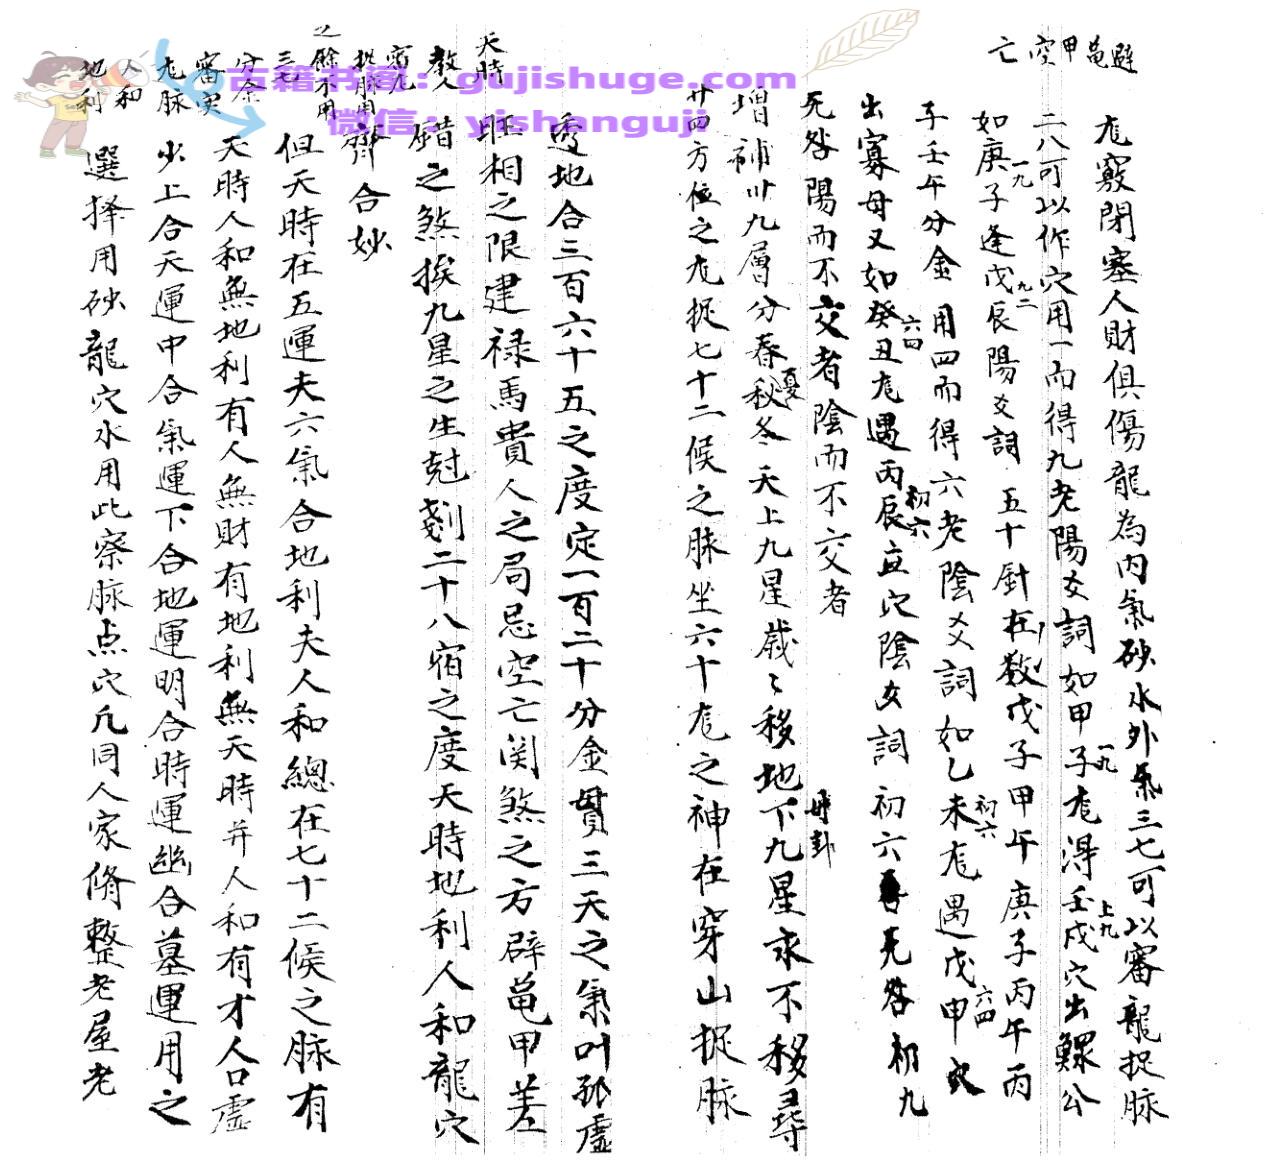 避黾甲空亡
尨竅閉塞人財俱傷龍為内氣砂水外氣三七可以審龍捉脉
二八可以作穴用一而得九老陽爻詞如甲子尨得壬戌穴出鰥公
一九
上九
如庚子逢戊辰陽爻詞 五十針在数戊子甲午庚子丙午丙
一九
九二
子壬午分金 用四而得六老陰爻詞如乙未尨遇戊甲穴
初六
六四
出寡母又如癸丑尨遇丙辰丑穴陰爻詞 初六 无咎初九
六四
初六
无咎陽而不交者陰而不交者
母卦
增補卅九層分春秋冬天上九星歲々移地下九星永不移尋
夏
廿四方位之尨捉七十二候之脉坐六十尨之神在穿山捉脉
透地合三百六十五之度定一百二十分金貫三天之氣叶孤虚
天時
旺相之限建禄馬貴人之局忌空亡関煞之方辟黾甲差
教人
錯之煞挨九星之生尅剗二十八宿之度天時地利人和龍穴
齊合妙
但天時在五運夫六氣合地利夫人和總在七十二候之脉有
天時人和無地利有人無財有地利無天時并人和有才人口虚
少上合天運中合氣運下合地運明合時運幽合墓運用之
選择用砂龍穴水用此察脉点穴凡同人家脩整老屋老
之餘不用
三七
分金
審穴
尨脉
人和
地利
古籍书阁：gujishuge.com
微信：yishanguji